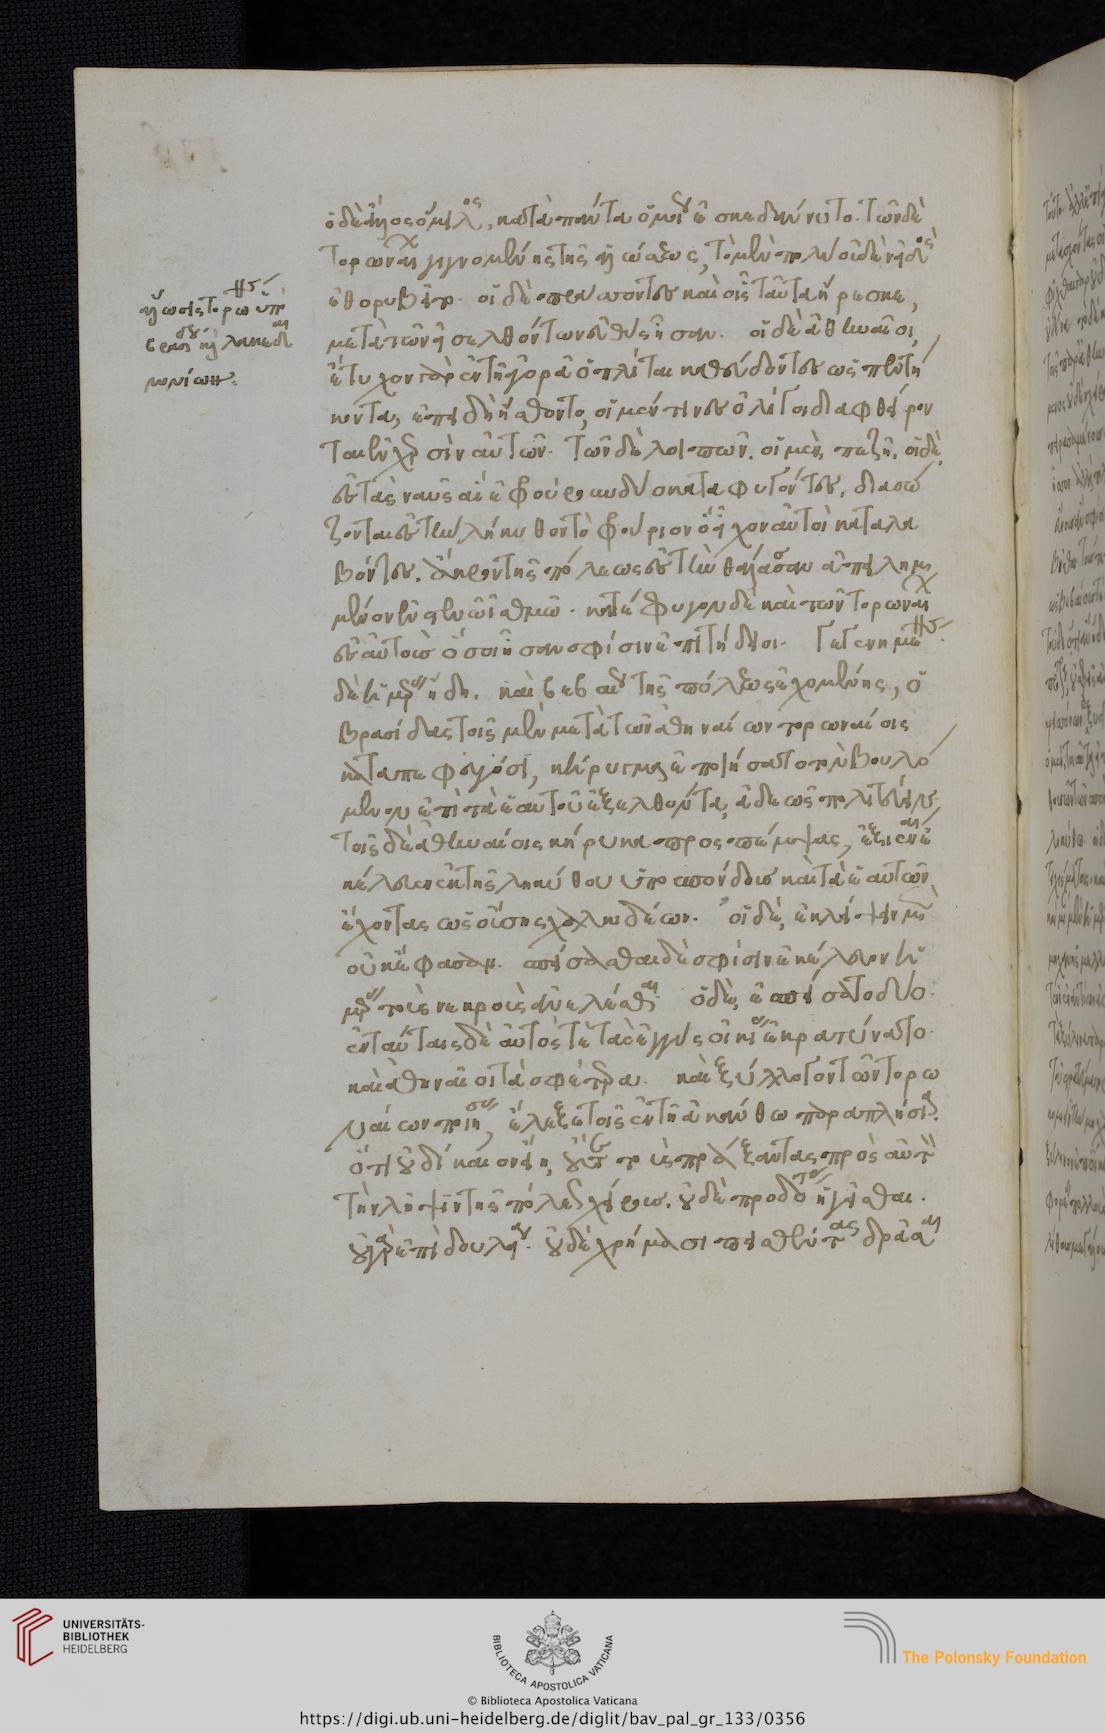 ὁ δὲ ἄλλος ὅμιλος, κατὰ πάντα ὁμοίως ἐσκεδάννυντο. τῶν δὲ
Τορωναίων γιγνομένης τῆς ἁλώσεως, τὸ μὲν πολὺ οὐδὲν εἰδὸς
ἐθορυβεῖτο. οἱ δὲ πράσσοντες καὶ οἷς ταῦτα ἤρεσκε,
μετὰ τῶν ἐσελθόντων εὐθὺς ἦσαν. οἱ δὲ ἀθηναῖοι,
ἔτυχον γὰρ ἐν τῇ ἀγορᾷ ὁπλῖται καθεύδοντες ὡς πεντή
κοντα, ἐπειδὴ ᾔσθοντο, οἱ μέν τινες ὀλίγοι διαφθείρον
ται ἐν χερσὶν αὐτῶν. τῶν δὲ λοιπῶν, οἱ μὲν πεζῇ, οἱ δὲ
ἐς τὰς ναῦς αἳ ἐφρούρουν δύο καταφυγόντες, διασώ
ζονται ἐς τὴν λήκυθον τὸ φρούριον ὃ εἶχον αὐτοὶ καταλα
βόντες, ἄκρον τῆς πόλεως ἐς τὴν θάλασσαν ἀπειλημ
μένον ἐν στενῷ ἰσθμῷ. κατέφυγον δὲ καὶ τῶν Τορωναίων
ἐς αὐτοὺς ὅσοι ἦσαν σφίσιν ἐπιτήδειοι. Γεγενημένης
δὲ ἡμέρας ἤδη, καὶ βεβαίως τῆς πόλεως ἐχομένης, ὁ
Βρασίδας τοῖς μὲν μετὰ τῶν ἀθηναίων τορωναίοις
καταπεφευγόσι, κήρυγμα ἐποιήσατο τὸν βουλό
μενον ἐπὶ τὰ ἑαυτοῦ ἐξελθόντα, ἀδεῶς πολιτεύειν.
τοῖς δὲ ἀθηναίοις κήρυκα προσπέμψας, ἐξιέναι ἐ
κέλευεν ἐκ τῆς ληκύθου ὑποσπόνδους καὶ τὰ ἑαυτῶν
ἔχοντας ὡς οὔσης χαλκιδέων. οἱ δὲ, ἐκλείψειν μὲν
οὐκ ἔφασαν. σπείσασθαι δὲ σφίσιν ἐκέλευον ἡ
μέραν τοὺς νεκροὺς ἀνελέσθαι. ὁ δὲ, ἐσπείσατο δύο.
ἐν ταύταις δὲ αὐτός τε τὰς ἐγγὺς οἰκίας ἐκρατύνατο.
καὶ ἀθηναῖοι τὰ σφέτερα. καὶ ξύλλογον τῶν τορω
ναίων ποιήσας, ἔλεξε τοῖς ἐν τῇ ἀκάνθῳ παραπλήσια.
ὅτι οὐ δίκαιον εἴη, οὔτε τοὺς πράξαντας πρὸς αὐτὸν
τὴν λῆψιν τῆς πόλεως χείρους, οὐδὲ προδότας ἡγεῖσθαι.
οὐ γὰρ ἐπὶ δουλείᾳ. οὐδὲ χρήμασι πεισθέντας δρᾶσαι
ἅλωσις τορώνης ὑπὸ
βρασίδου καὶ λακεδαι
μονίων:
UNIVERSITÄTS-
BIBLIOTHEK
HEIDELBERG
BIBLIOTECA APOSTOLICA VATICANA
The Polonsky Foundation
© Biblioteca Apostolica Vaticana
https://digi.ub.uni-heidelberg.de/diglit/bav_pal_gr_133/0356